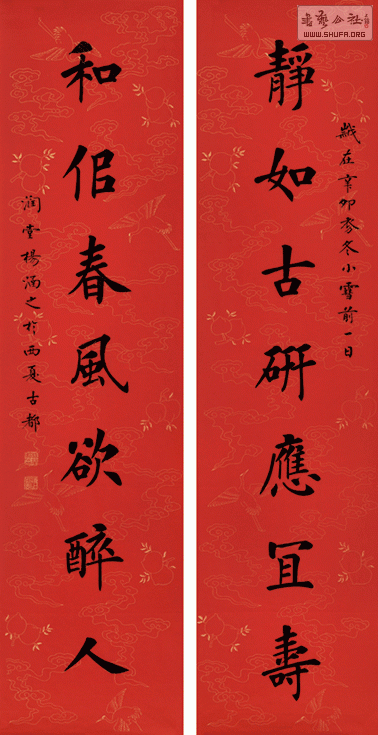 書藝公社
WWW.SHUFA.ORG
歲在辛卯冬小雪前一日
靜如古研應冝壽
和佀春風欲醉人
潤堂楊涵之於西夏古都